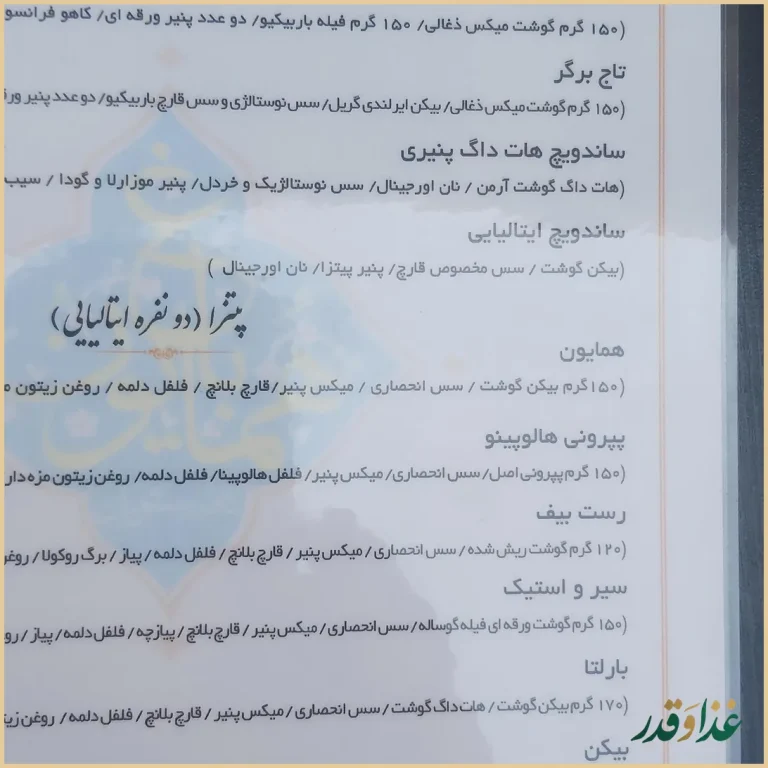 (۱۵۰ گرم گوشت میکس ذغالی/ ۱۵۰ گرم فیله باربیکیو/ دو عدد پنیر ورقه ای/ کاهو فرانسو
تاج برگر
(۱۵۰ گرم گوشت میکس ذغالی/ بیکن ایرلندی گریل/ سس نوستالژی و سس قارچ باربیکیو/ دو عدد پنیر ورق
ساندویچ هات داگ پنیری
(هات داگ گوشت آرمن / نان اورجینال/ سس نوستالژیک و خردل/ پنیر موزارلا و گودا / سیب
ساندویچ ایتالیایی
(بیکن گوشت / سس مخصوص قارچ/ پنیر پیتزا/ نان اورجینال )
پیتزا (دو نفره ایتالیایی)
همایون
(۱۵۰گرم بیکن گوشت / سس انحصاری / میکس پنیر/ قارچ بلانچ / فلفل دلمه / روغن زیتون م
پپرونی هالوپینو
(۱۵۰ گرم پپرونی اصل/ سس انحصاری/ میکس پنیر/ فلفل هالوپینا/ فلفل دلمه/ روغن زیتون مزه دار
رست بیف
(۱۲۰ گرم گوشت ریش شده / سس انحصاری / میکس پنیر / قارچ بلانچ / فلفل دلمه / پیاز / برگ روکولا / روغن
سیر و استیک
(۱۵۰ گرم گوشت ورقه ای فیله گوساله/ سس انحصاری / میکس پنیر / قارچ بلانچ / پیازچه / فلفل دلمه / پیاز / رو
بارلتا
(۱۷۰ گرم بیکن گوشت / هات داگ گوشت / سس انحصاری / میکس پنیر / قارچ بلانچ / فلفل دلمه / روغن زیت
بیکن
غذا و قدر